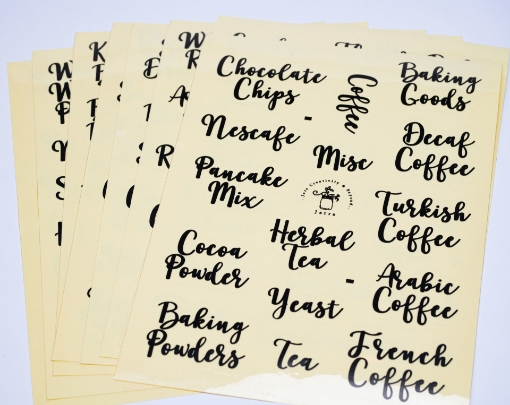 Chocolate
Chips
Coffee
Baking
Goods
Nescafe
-
Misc
Decaf
Coffee
Pancake
Mix
Turkish
Coffee
Herbal
Tea
Cocoa
Powder
-
Arabic
Coffee
Yeast
Baking
Powders
Tea
French
Coffee